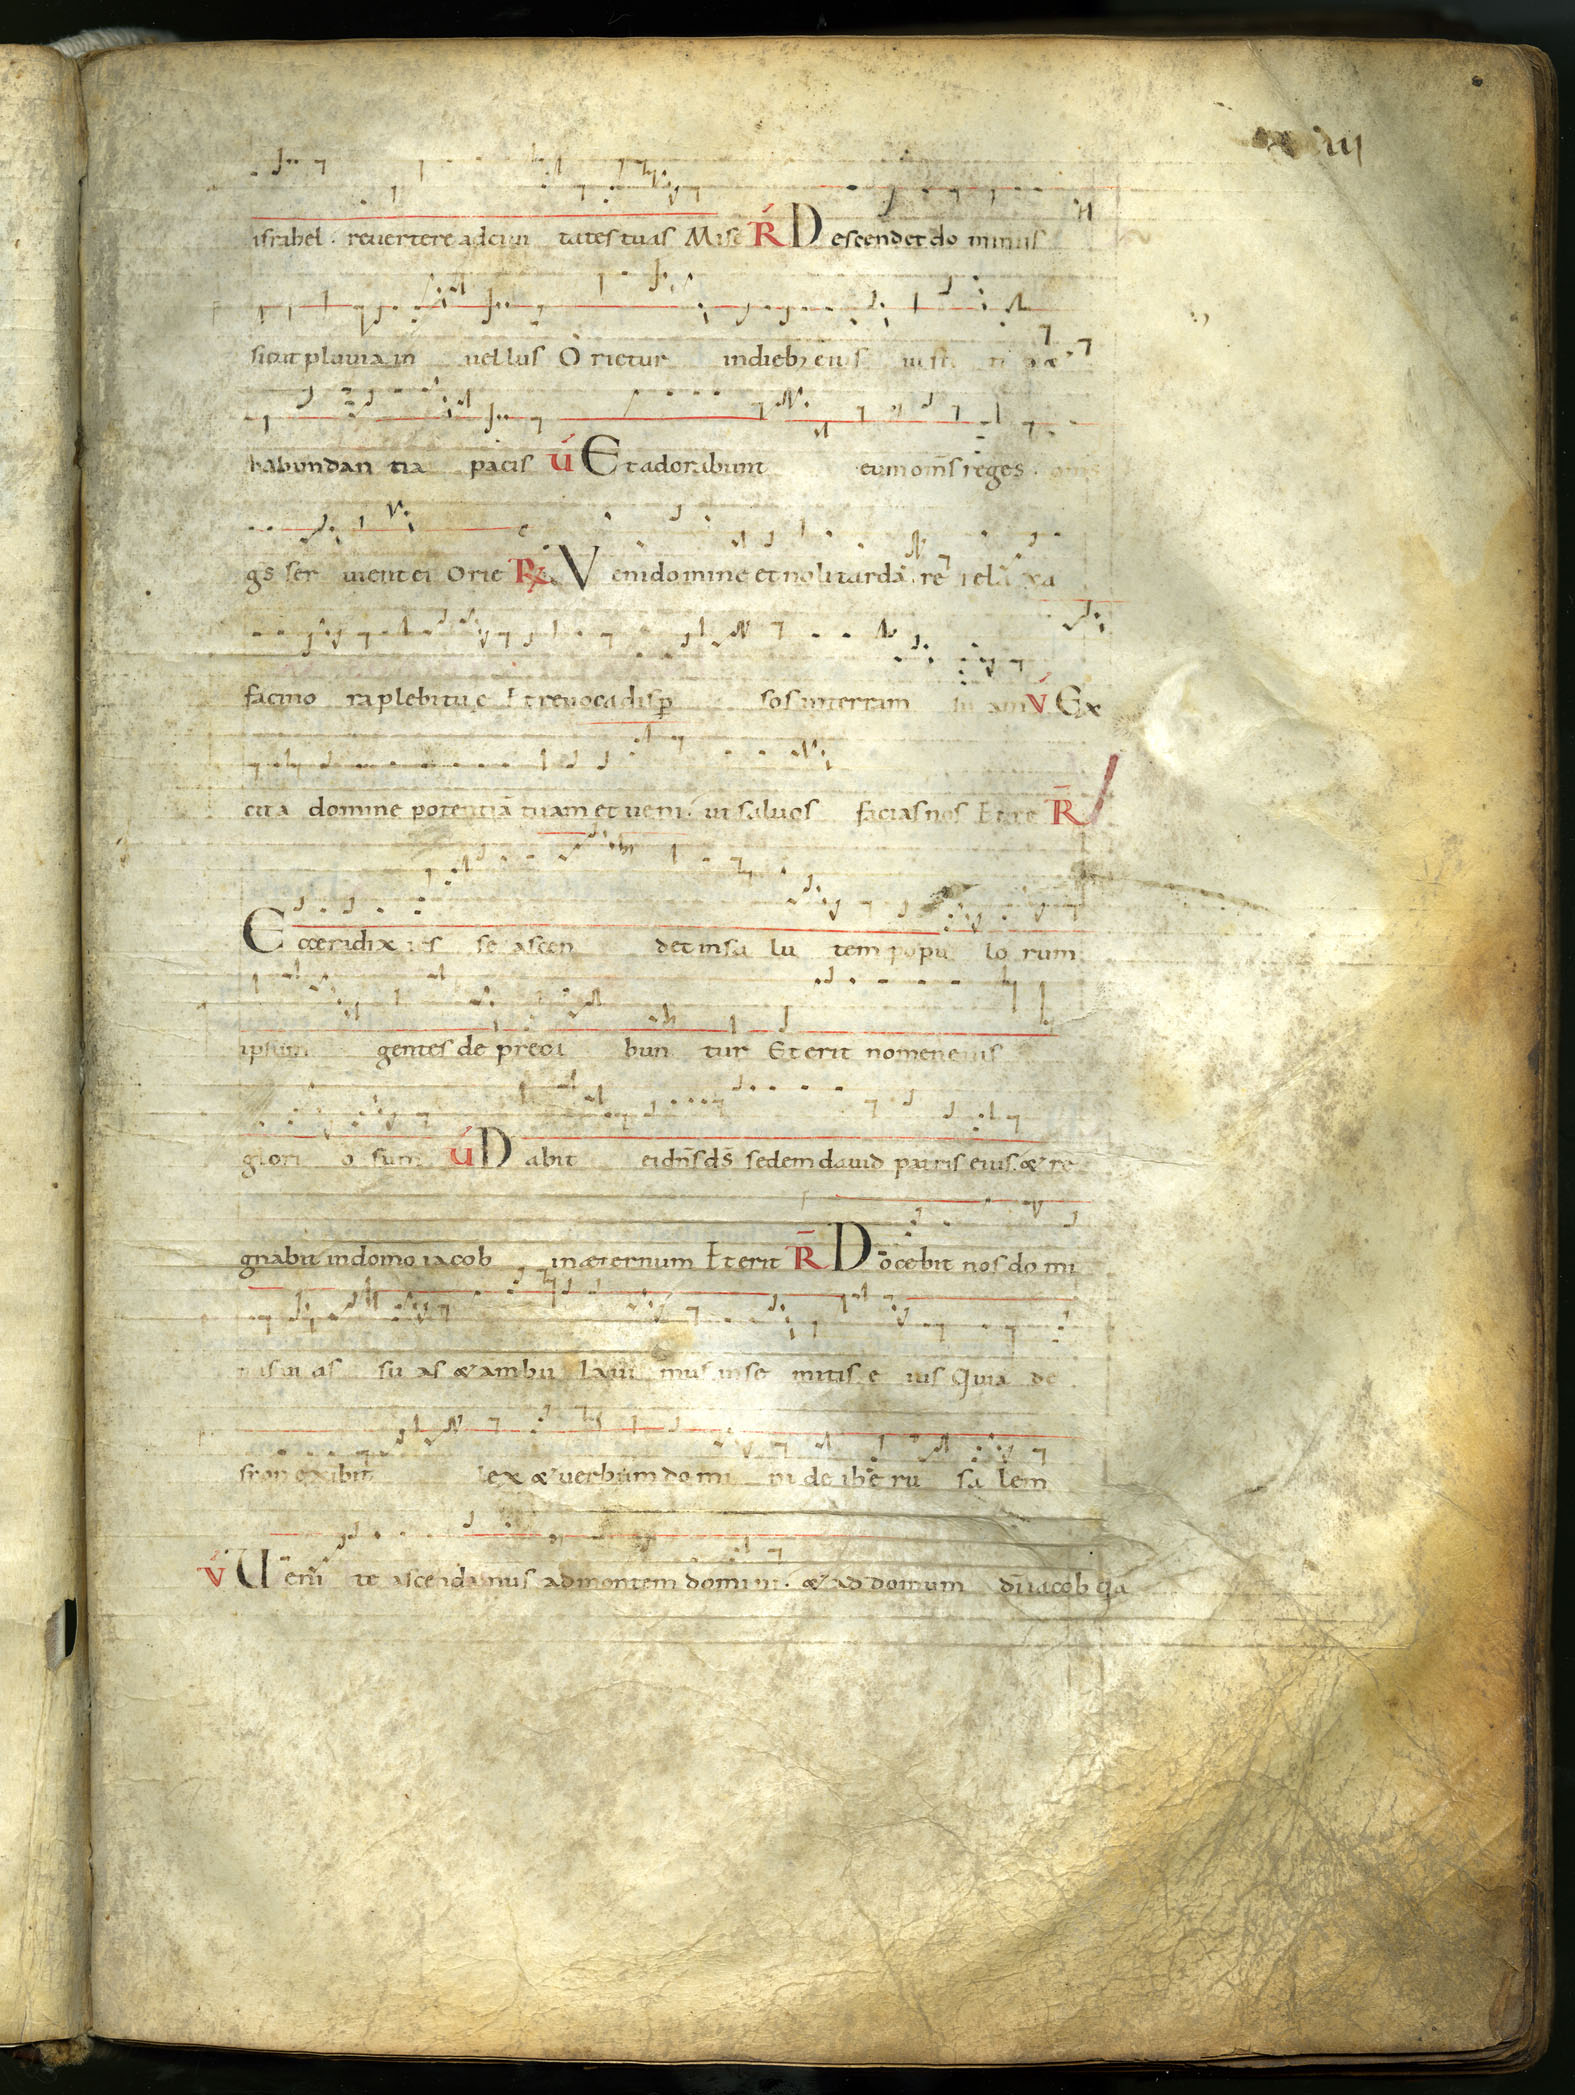 israhel . revertere ad civi tates tuas Mise R̄ Descendet do minus
sicut pluvia in vellus Orietur in dieb; eius iusti ti a &
habundan tia pacis V́ Et adorabunt eum om̄s reges . om̄s
gs̄ ser vient ei Orie R̄ Veni domine et noli tardā re relā xa
facino ra plebi tue Et revoca disp̱ sos in terram tu am V́ Ex
cita domine potentiā tuam et veni . ut salvos facias nos Et re R̄
Ecce radix ies se ascen det in sa lu tem popu lo rum
ipsum gentes de preca bun tur Et erit nomen eius
glori o sum V́ Dabit ei dn̄s ds̄ sedem david patris eius . & re
gnabit in domo iacob in æternum Et erit R̄ Docebit nos do mi
nus vi as su as & ambu labi mus in se mitis e ius Quia de
sion exibit lex & verbum do mi ni de ihe ru sa lem
V́ Veni te ascendamus ad montem domini . & ad domum dī iacob q̄a